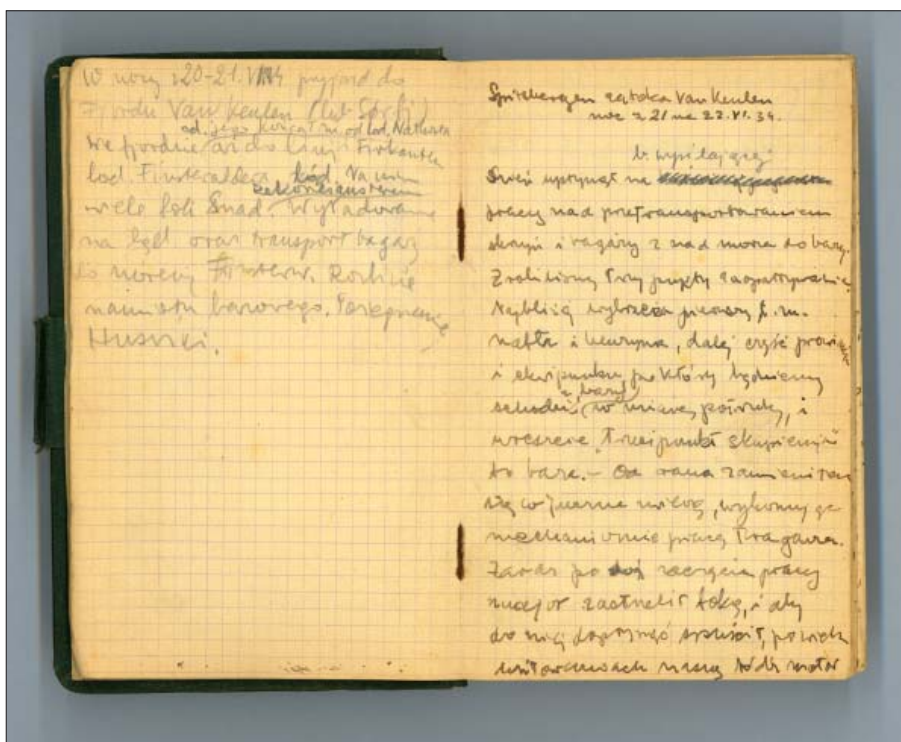 W nocy z 20-21. VI 34 przyjazd do
Fjordu Van Keulen (lub Sørfj.)
od jego m. od lod. Nathorsta
We fjordzie aż do linji
lod. Finsterwaldera, lód. Na nim
zakończeniem
wiele fok Snad. Wyładowanie
na ląd oraz transport bagaży
do moreny Finsterw. Rozbicie
namiotu bazowego. Pożegnanie
Husviki.
Spitzbergen zatoka Van Keulen
noc z 21 na 22. VI. 34.
b. wysilającej
Dzień upłynął na
pracy nad przetransportowaniem
skrzyń i bagaży z nad morza do bazy.
Zrobiliśmy trzy punkty zaopatrzenia
Najbliżej wybrzeża pierwszy t. m.
nafta i benzyna, dalej część prowian
i ekwipunku po który będziemy
z bazy
schodzić w miarę potrzeby, i
wreszcie "trzeci punkt skupienia"
to baza. - Od rana zamieniłem
się w juczne zwierzę, wykonując
mechanicznie pracę tragarza.
Zaraz po zaczęciu pracy
major zastrzelił fokę, i aby
do niej dopłynąć spuścił, po wielu
usiłowaniach naszą łódź motor